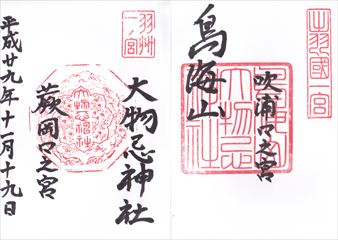 出羽國一宮
鳥海山
吹浦口之宮
大物忌
神社
羽州
一ノ宮
大物忌神社
蕨岡口之宮
平成廿九年十一月十九日